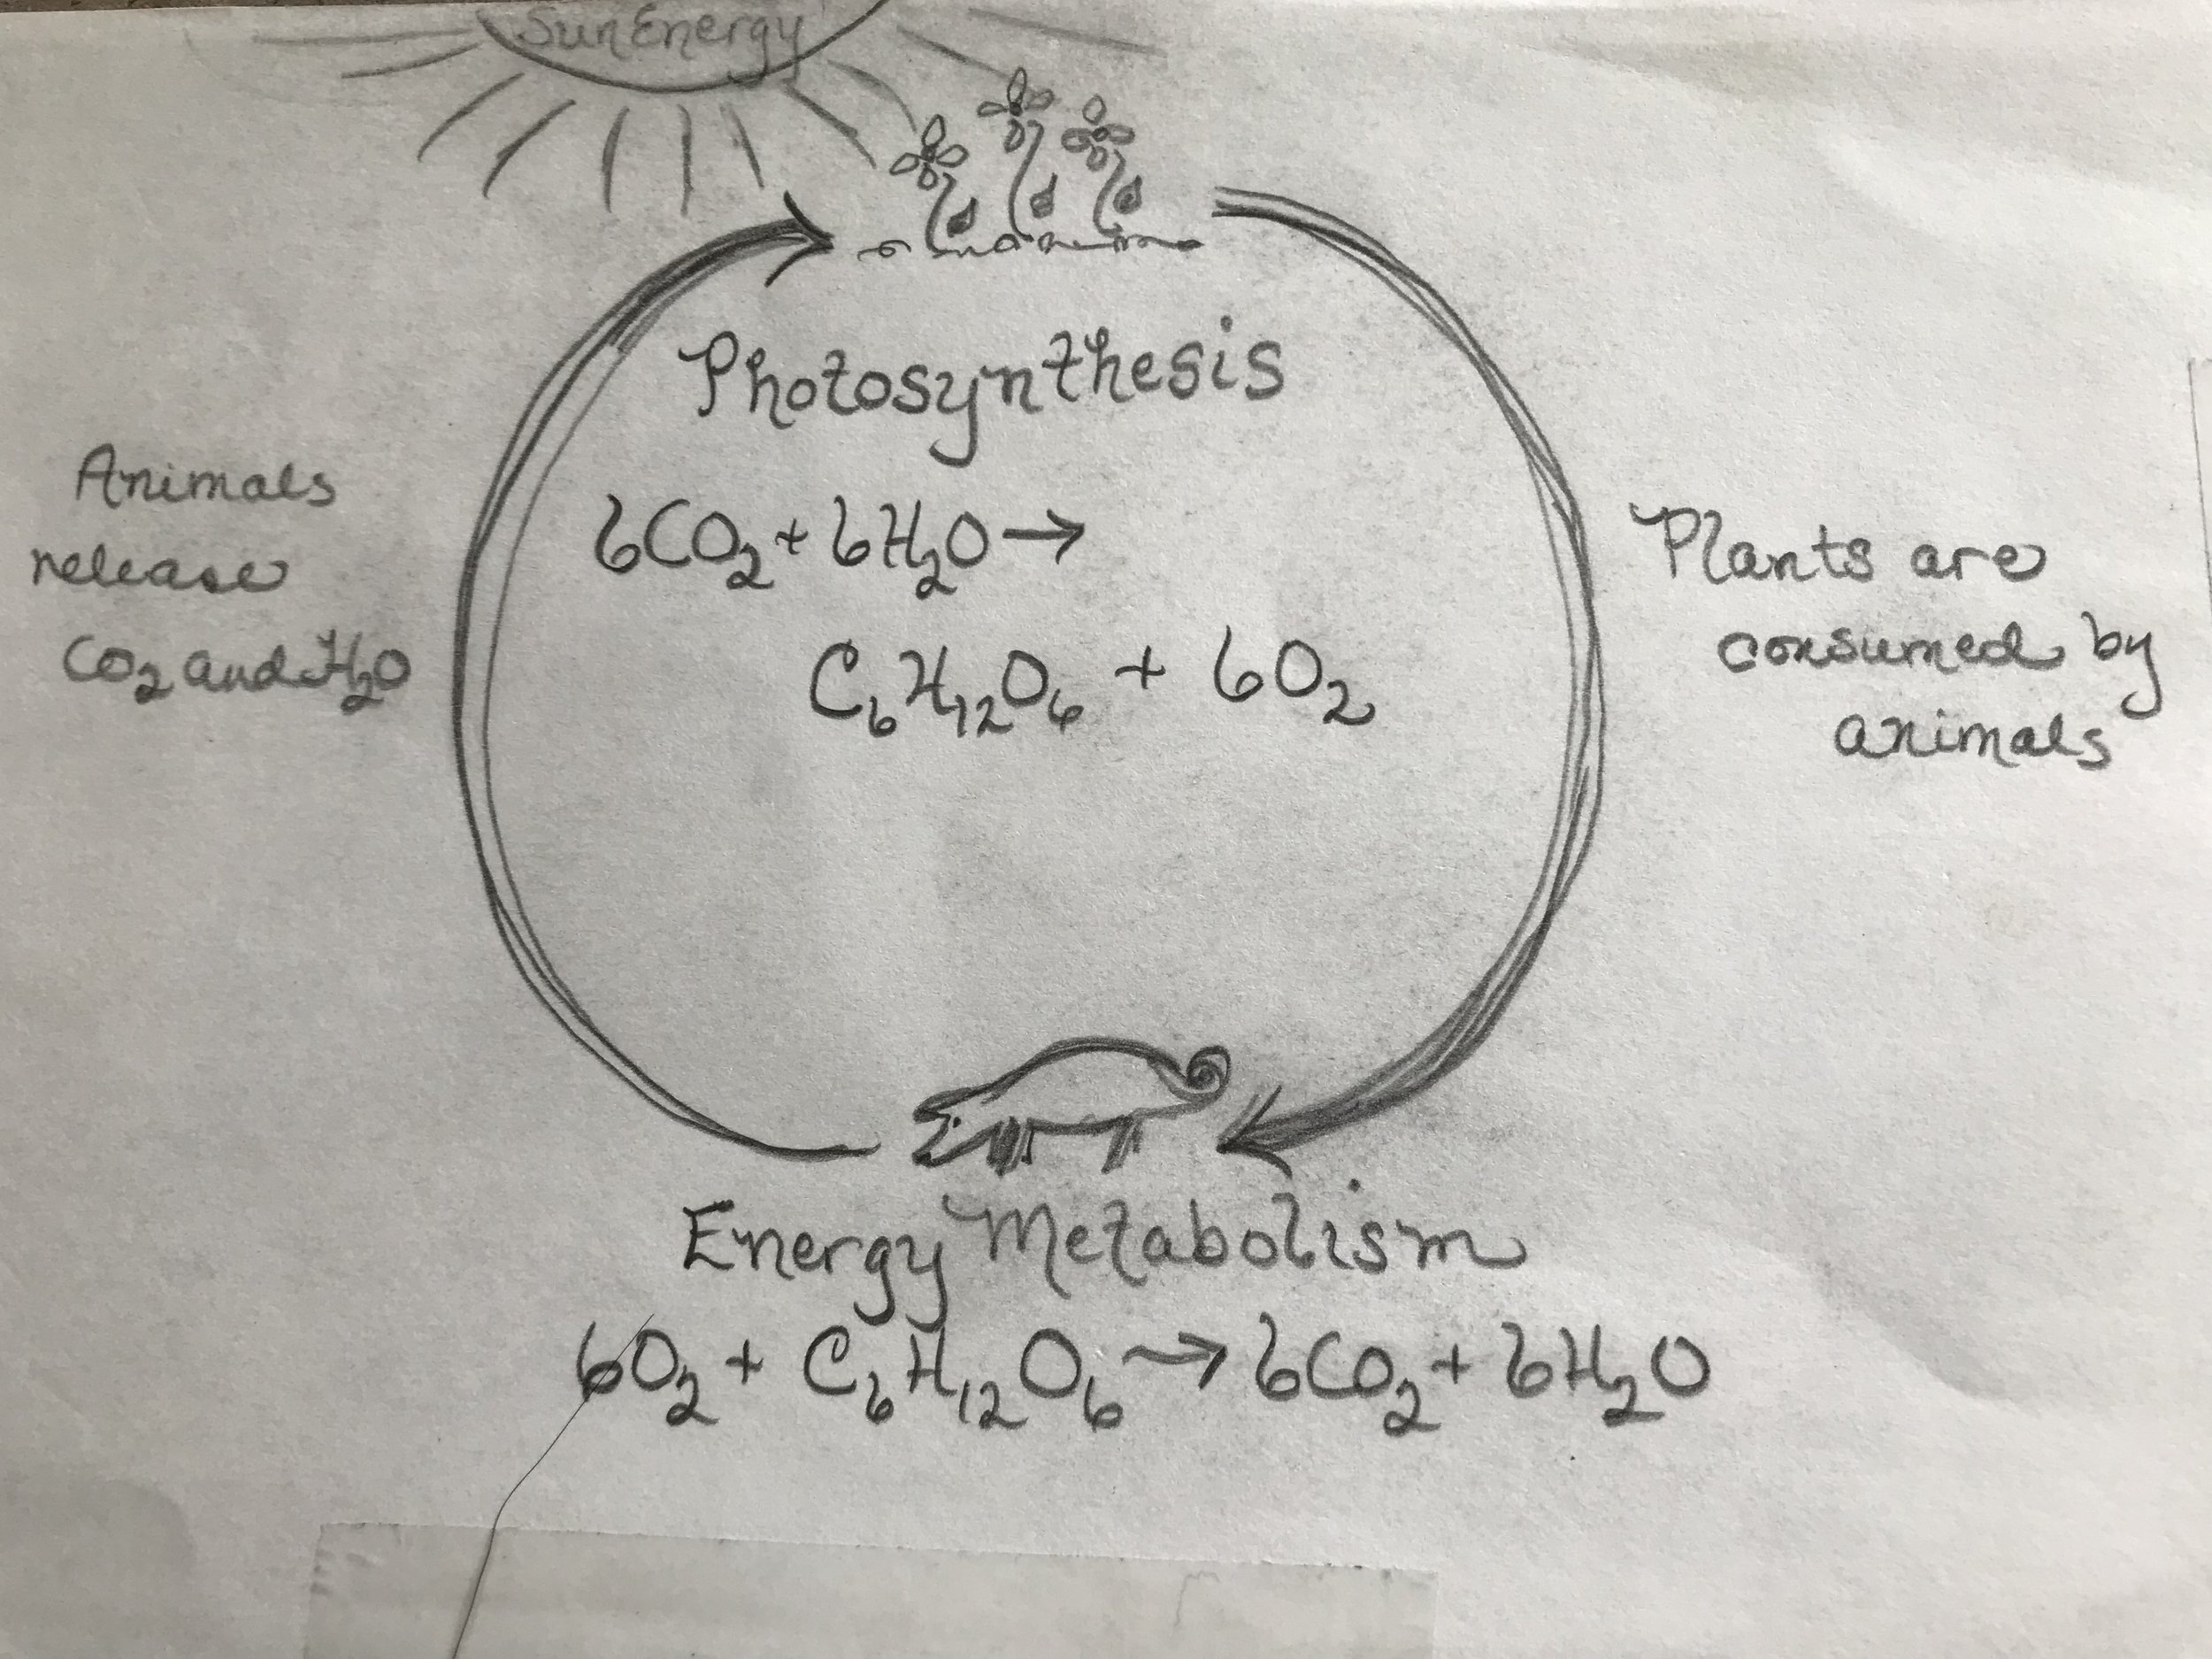 Sun Energy
Photosynthesis
6CO₂ + 6H₂O →
C₆H₁₂O₆ + 6O₂
Animals
release
CO₂ and H₂O
Plants are
consumed by
animals
Energy Metabolism
6O₂ + C₆H₁₂O₆ → 6CO₂ + 6H₂O